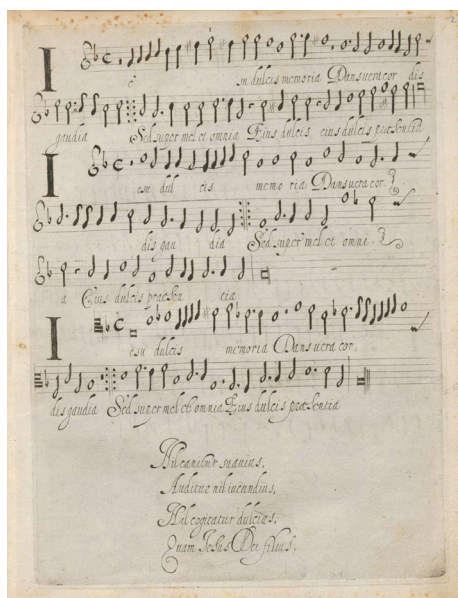 I e su dulcis memoria Dans vera cor dis
gaudia Sed super mel et omnia Eius dulcis eius dulcis præsentia
I esu dul cis memo ria Dans vera cor.
dis gau dia Sed super mel et omni
a Eius dulcis præsen tia
I esu dulcis memoria Dans vera cor,
dis gaudia Sed super mel et omnia Eius dulcis præsentia
Nil canitur suavius,
Auditur nil iucundius,
Nil cogitatur dulcius,
Quam Jesus Dei filius.